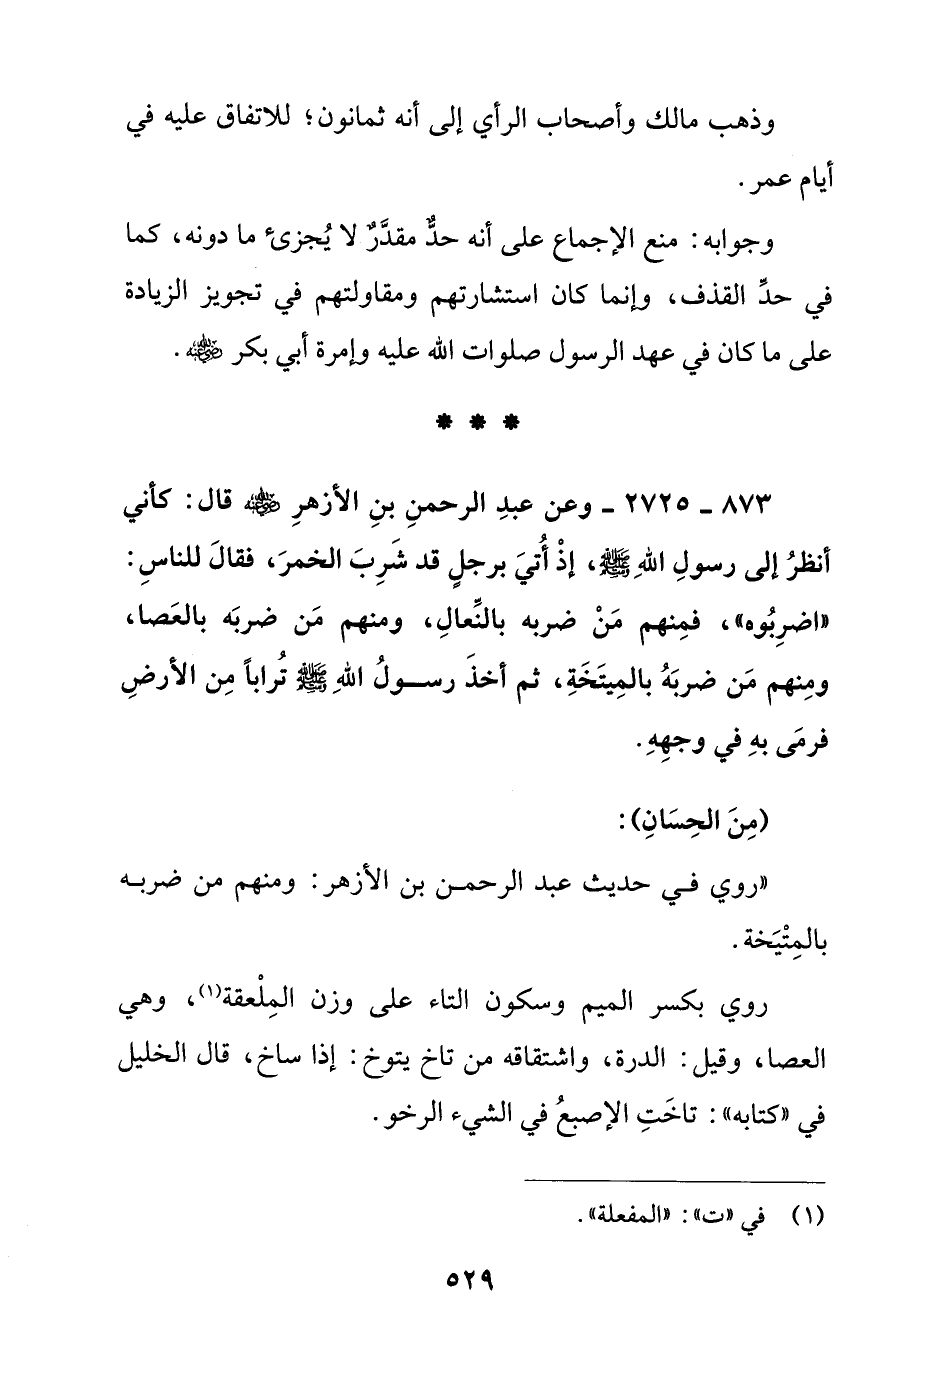 وذهب مالك وأصحاب الرأي إلى أنه ثمانون؛ للاتفاق عليه في
أيام عمر.
وجوابه: منع الإجماع على أنه حدٌّ مقدَّرٌ لا يُجزىء ما دونه، كما
في حدِّ القذف، وإنما كان استشارتهم ومقاولتهم في تجويز الزيادة
على ما كان في عهد الرسول صلوات الله عليه وإمرة أبي بكر رضي الله عنه.
* * *
٨٧٣ - ٢٧٢٥ - وعن عبدِ الرحمنِ بنِ الأزهرِ رضي الله عنه قال: كأني
أنظرُ إلى رسولِ اللهِ ﷺ، إذْ أُتيَ برجلٍ قد شَرِبَ الخمرَ، فقالَ للناسِ:
«اضرِبُوه»، فمِنهم مَنْ ضربه بالنِّعالِ، ومنهم مَن ضربَه بالعَصا،
ومِنهم مَن ضربَهُ بالمِيتَخَةِ، ثم أخذَ رسولُ اللهِ ﷺ تُراباً مِن الأرضِ
فرمَى بهِ في وجهِهِ.
(مِنَ الحِسَانِ):
«روي في حديث عبد الرحمن بن الأزهر: ومنهم من ضربه
بالمِتْيَخة.
روي بكسر الميم وسكون التاء على وزن المِلْعقة(١)، وهي
العصا، وقيل: الدرة، واشتقاقه من تاخ يتوخ: إذا ساخ، قال الخليل
في «كتابه»: تاخَتِ الإصبعُ في الشيء الرخو.
(١) في «ت»: «المفعلة».
٥٢٩